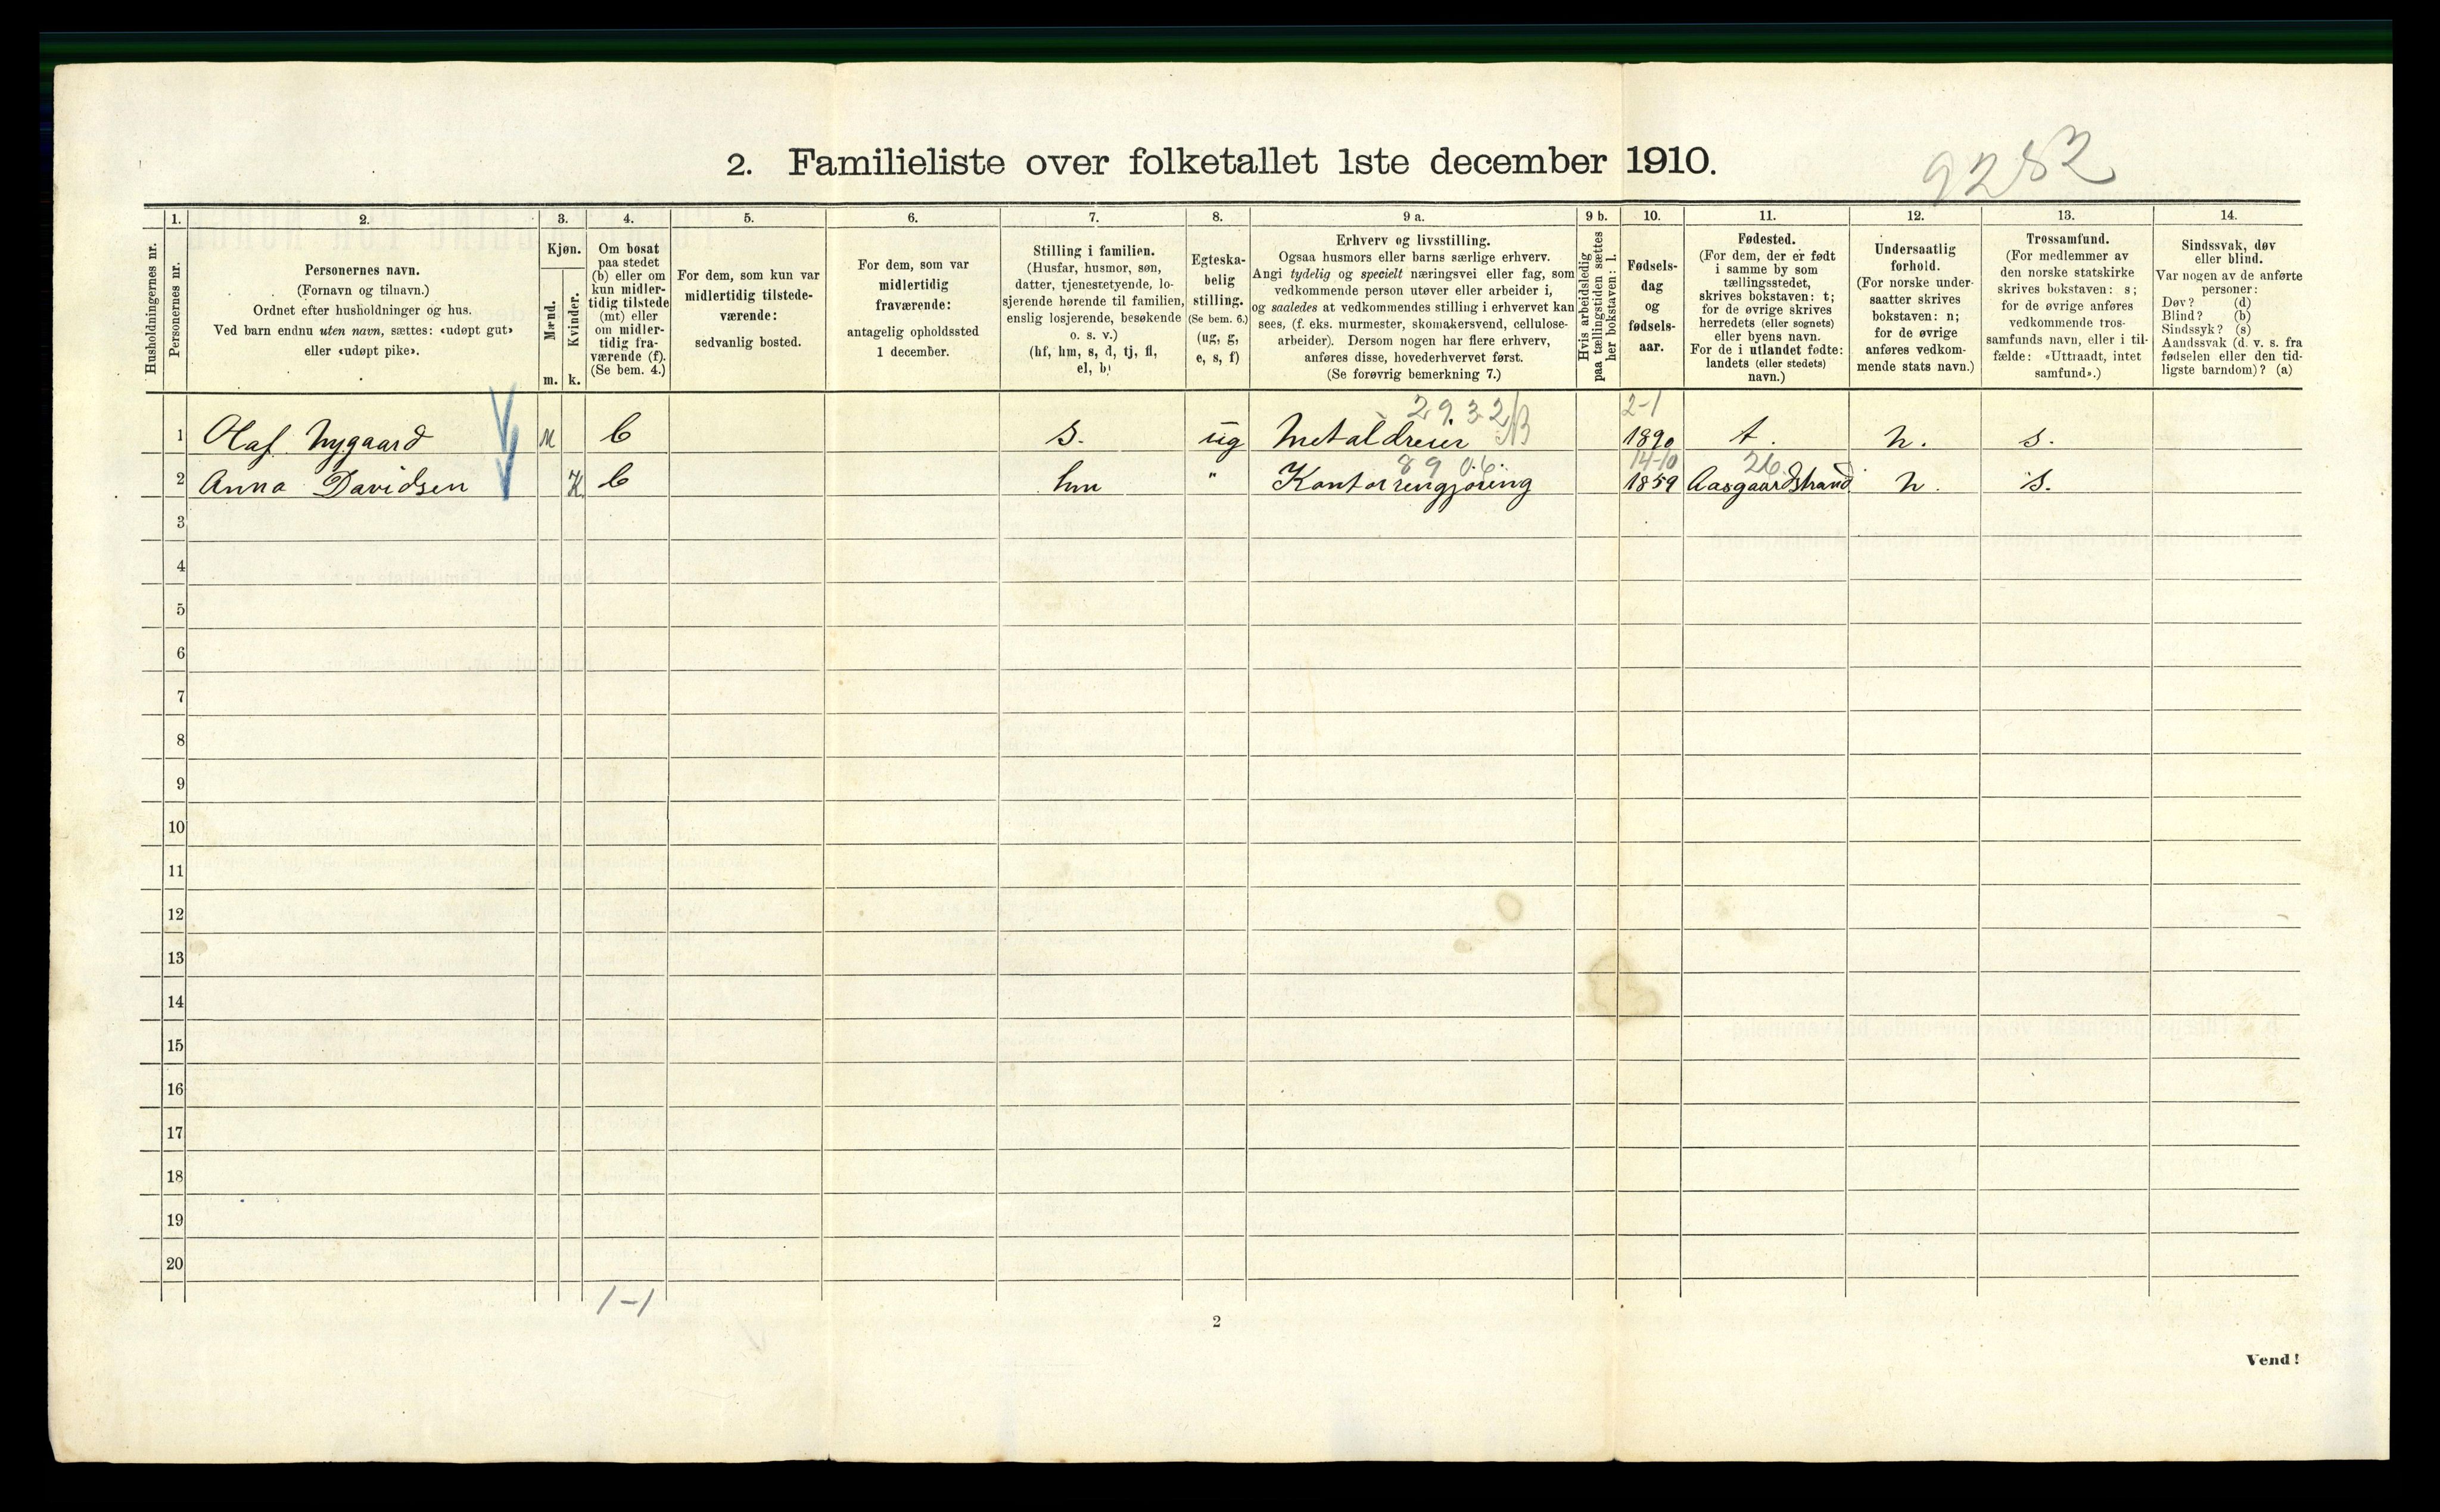 2. Familieliste over folketallet 1ste december 1910.
9282
Husholdningernes nr.
1.
Personernes nr.
2.
Personernes navn.
(Fornavn og tilnavn.)
Ordnet efter husholdninger og hus.
Ved barn endnu uten navn, sættes: «udøpt gut»
eller «udøpt pike».
3.
Kjøn.
Mænd.
m.
Kvinder.
k.
4.
Om bosat
paa stedet
(b) eller om
kun midler-
tidig tilstede
(mt) eller
om midler-
tidig fra-
værende (f).
(Se bem. 4.)
5.
For dem, som kun var
midlertidig tilstede-
værende:
sedvanlig bosted.
6.
For dem, som var
midlertidig
fraværende:
antagelig opholdssted
1 december.
7.
Stilling i familien.
(Husfar, husmor, søn,
datter, tjenestetyende, lo-
sjerende hørende til familien,
enslig losjerende, besøkende
o. s. v.)
(hf, hm, s, d, tj, fl,
el, b)
8.
Egteska-
belig
stilling.
(Se bem. 6.)
(ug, g,
e, s, f)
9 a.
Erhverv og livsstilling.
Ogsaa husmors eller barns særlige erhverv.
Angi tydelig og specielt næringsvei eller fag, som
vedkommende person utøver eller arbeider i,
og saaledes at vedkommendes stilling i erhvervet kan
sees, (f. eks. murmester, skomakersvend, cellulose-
arbeider). Dersom nogen har flere erhverv,
anføres disse, hovederhvervet først.
(Se forøvrig bemerkning 7.)
9 b.
Hvis arbeidsledig
paa tællingstiden sættes
her bokstaven: l.
10.
Fødsels-
dag
og
fødsels-
aar.
11.
Fødested.
(For dem, der er født
i samme by som
tællingsstedet,
skrives bokstaven: t;
for de øvrige skrives
herredets (eller sognets)
eller byens navn.
For de i utlandet fødte:
landets (eller stedets)
navn.)
12.
Undersaatlig
forhold.
(For norske under-
saatter skrives
bokstaven: n;
for de øvrige
anføres vedkom-
mende stats navn.)
13.
Trossamfund.
(For medlemmer av
den norske statskirke
skrives bokstaven: s;
for de øvrige anføres
vedkommende tros-
samfunds navn, eller i til-
fælde: «Uttraadt, intet
samfund».)
14.
Sindssvak, døv
eller blind.
Var nogen av de anførte
personer:
Døv? (d)
Blind? (b)
Sindssyk? (s)
Aandssvak (d. v. s. fra
fødselen eller den tid-
ligste barndom)? (a)
2932 B 2-1
1 Olaf Nygaard M b s. ug Metaldreier 1890 t. n. s.
8906. 14-10 26.
2 Anna Davidsen K b hm " Kontorrengjøring 1859 Aasgaardstrand n. s.
3
4
5
6
7
8
9
10
11
12
13
14
15
16
17
18
19
20
1-1
2
Vend!